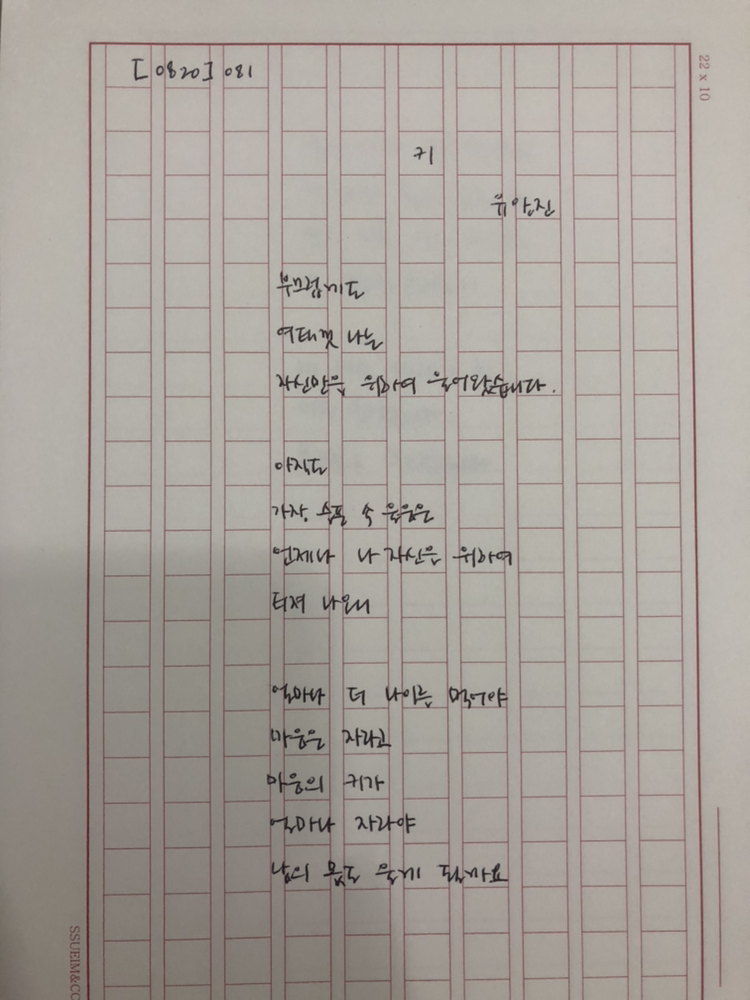 [0820] 081
22 x 10
키
유안진
부끄럽게도
여태껏 나는
자신만을 위하여 울어왔습니다.
아직도
가장 슬플 속 울음은
언제나 나 자신을 위하여
터져 나오니
얼마나 더 나이를 먹어야
마음은 자라고
마음의 키가
얼마나 자라야
남의 몫도 울게 될까요
SSUEIM&CO